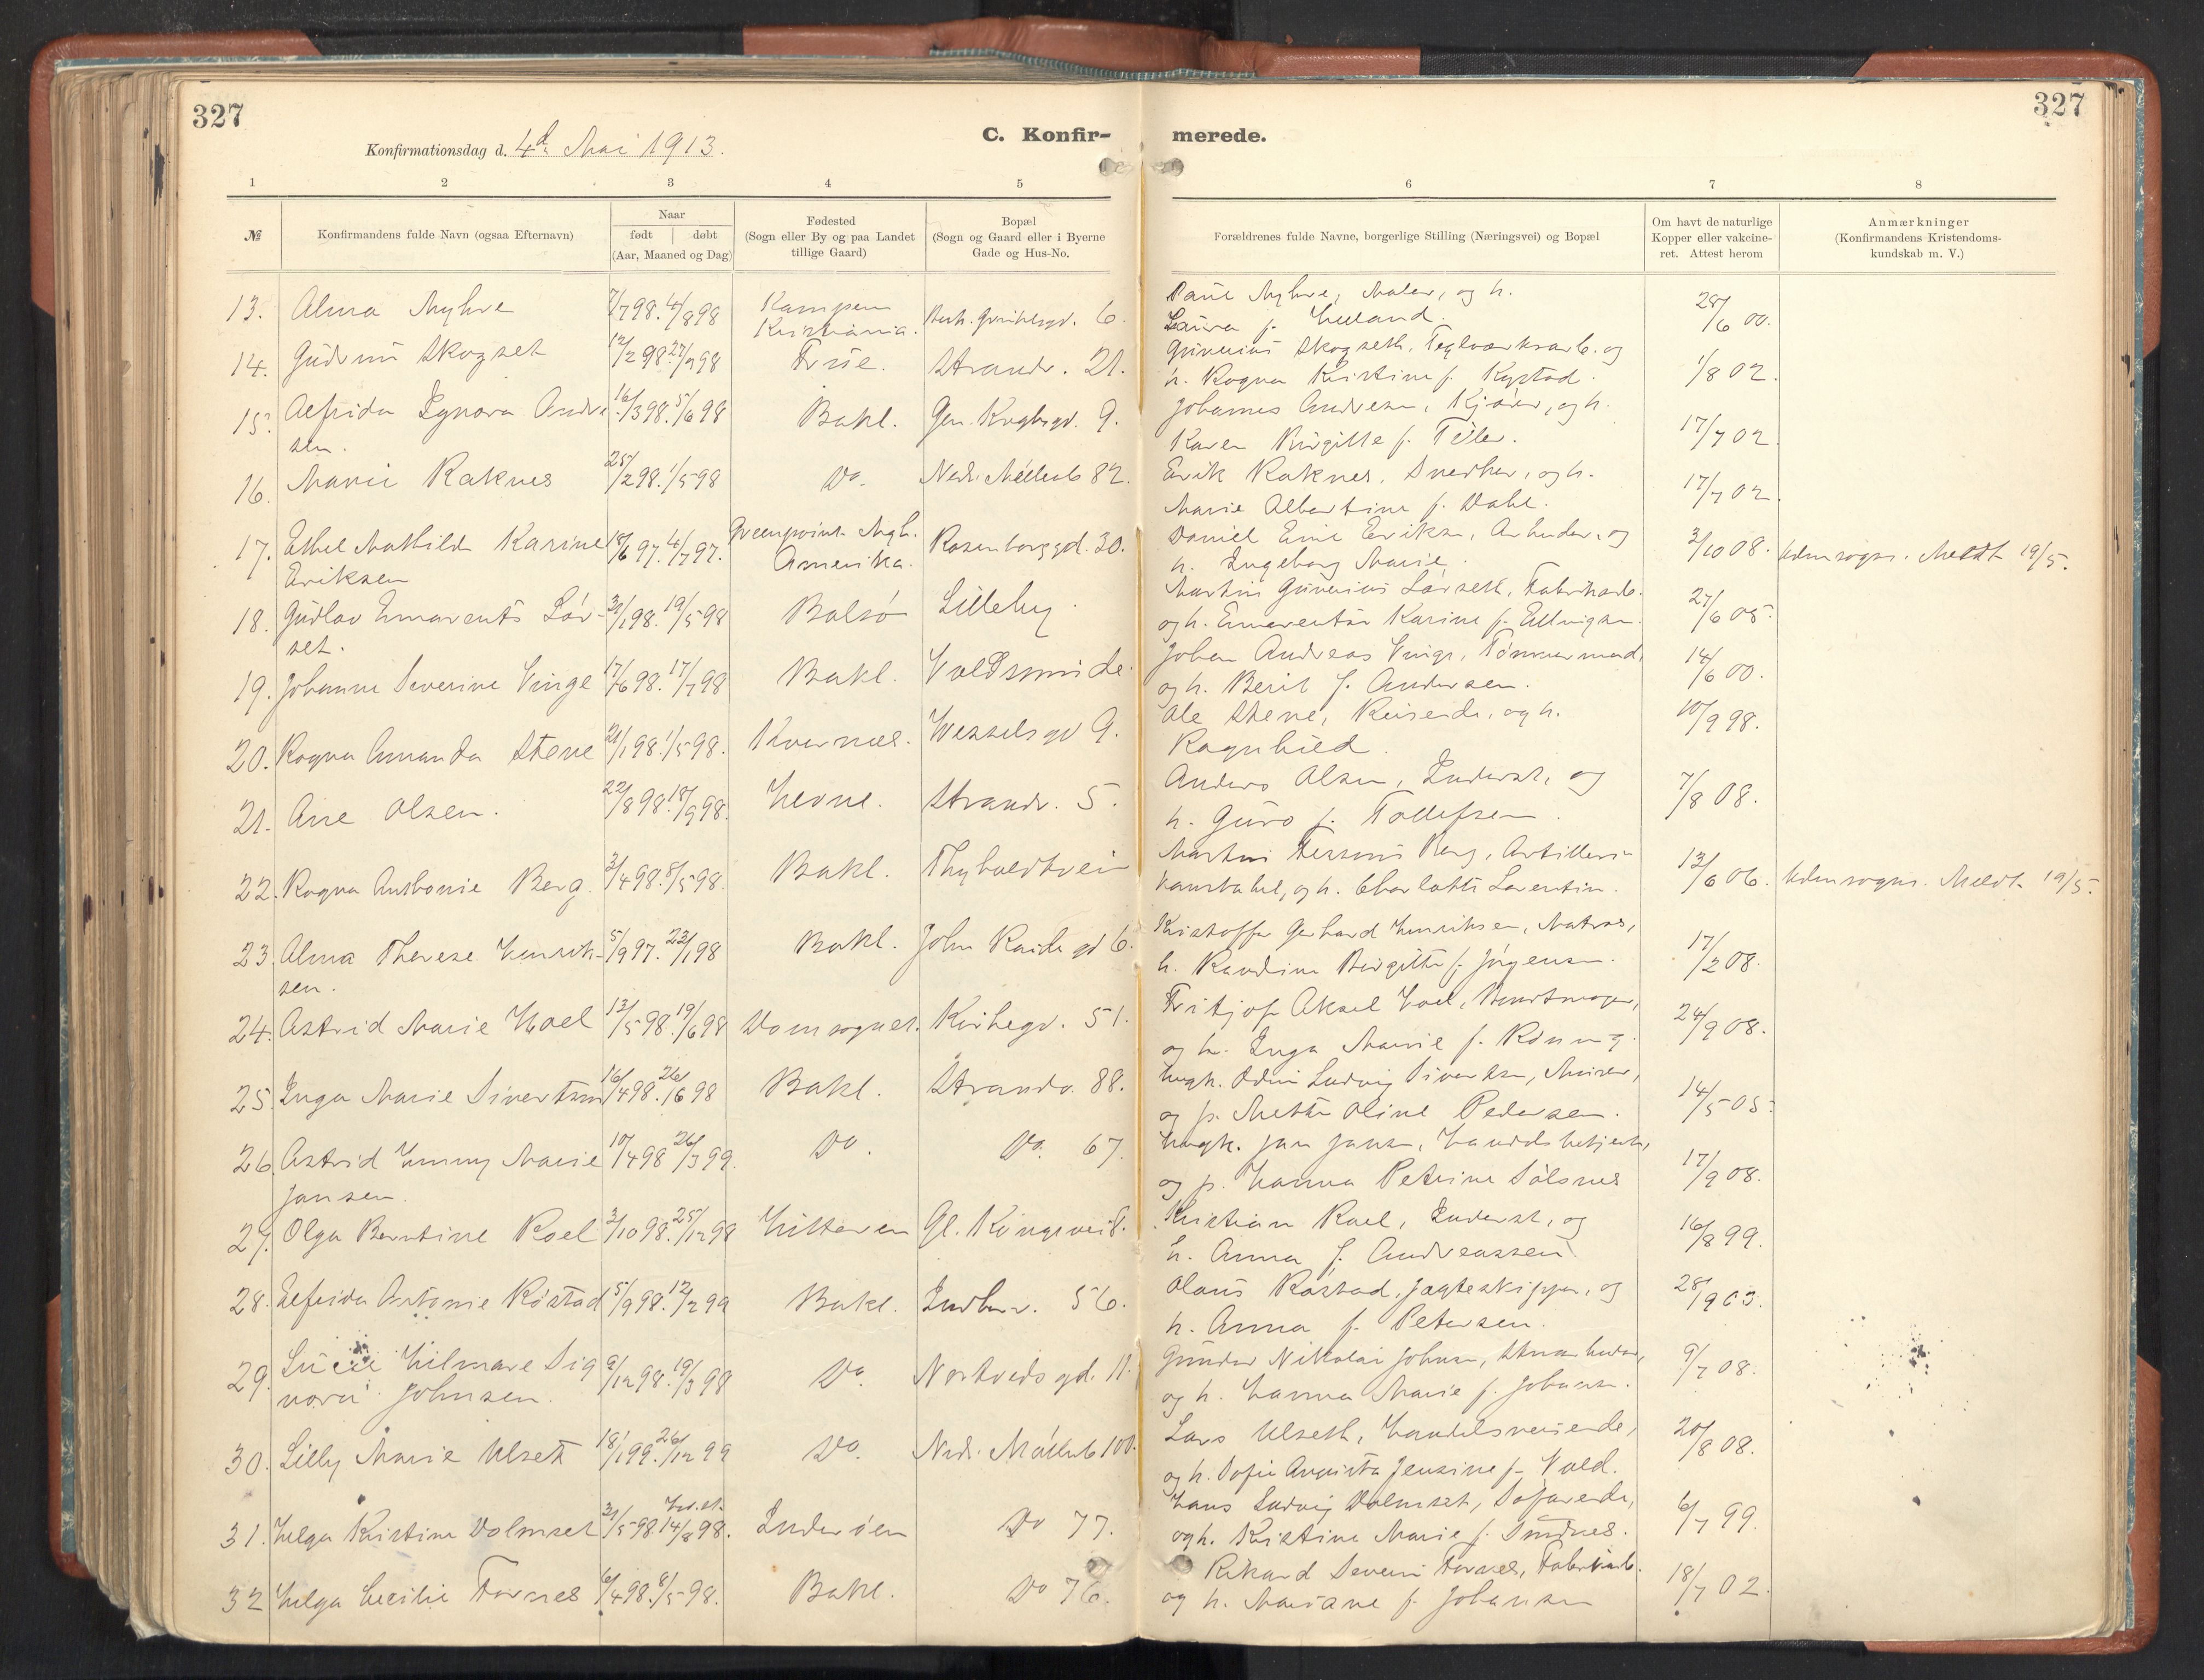 327
327
Konfirmationsdag d. 4de Mai 1913.
C. Konfir-
merede.
1 2 3 4 5 6 7 8
№
Konfirmandens fulde Navn (ogsaa Efternavn)
Naar
født døbt
(Aar, Maaned og Dag)
Fødested
(Sogn eller By og paa Landet
tillige Gaard)
Bopæl
(Sogn og Gaard eller i Byerne
Gade og Hus-No.
Forældrenes fulde Navne, borgerlige Stilling (Næringsvei) og Bopæl
Om havt de naturlige
Kopper eller vakcine-
ret. Attest herom
Anmærkninger
(Konfirmandens Kristendoms-
kundskab m. V.)
13. Alma Myhre 7/7 98. 4/8 98 Kampen Kristiania. 6. Paul Myhre, Maler, og h.
Laura f. Lieland. 28/6 00.
14. Gudrun Skogset 12/2 98. 27/2 98 Strandv. 21. Gunerius Skogseth, Teglværksarb. og
h. Ragna Kristine f. Kystad. 1/8 02.
15. Alfrida Andre- 16/3 98. 5/6 98 Bakl. 9. Johannes Andresen, Kjører, og h.
sen. Karen Birgitte f. Tiller. 17/7 02
16. Marie Raknes 25/2 98. 1/5 98 Do. Nedr. Møllenb 82. Erik Raknes, Snedker, og h.
Marie Albertine f. Dahl. 17/7 02.
17. Ethel Mathilde Karine 18/6 97. 4/7 97. Greenpoint Amerika. Rosenborggd. 30. Daniel Emil Eriksen, Arbeider, og 3/10 08. Udensogns. Meldt 19/5.
Eriksen h. Ingeborg Marie.
18. Gudlav Emarents Lør- 31/1 98. 19/5 98 Bolsø Lilleby. Martin Gunerius Lørseth, Fabrikarb.
set. og h. Emerentse Karine f. Ellingsen. 27/6 05.
19. Johanne Severine Vinge 17/6 98. 17/7 98 Bakl. Voldsminde. Johan Andreas Vinge, Tømmermand,
og h. Berit f. Andersen. 14/6 00.
20. Ragna Amanda Stene 21/1 98. 1/5 98. Kvernes. Wesselsgd 9. Ole Stene, Reisende, og h.
Ragnhild. 10/9 98.
21. Ane Olsen. 22/8 98. 18/9 98. Hevne. Strandv. 5. Anders Olsen, Inderst, og
h. Guro f. Tollefsen. 7/8 08.
22. Ragna Antonie Berg. 3/4 98. 8/5 98. Bakl. Thyholdtvei Martin Berg, Artilleri-
konstabel, og h. Charlotte Laventine. 13/6 06. Udensogns. Meldt 19/5.
23. Alma Therese Henrik- 5/9 97. 23/1 98 Bakl. 6. Kristoffer Gerhard Henriksen, Matros,
sen. h. Randine Birgitte f. Jørgensen. 17/2 08.
24. Astrid Marie Hoel 13/5 98. 19/6 98 Domsognet. Kirkegd. 51. Fritjof Aksel Hoel,
og h. Inga Marie f. Rønning. 24/9 08.
25. Inga Marie Sivertsen 16/4 98. 26/6 98 Bakl. Strandv. 88. Ungk. Odin Ludvig Sivertsen, Murer,
og p. Mette Oline Pedersen. 14/5 05.
26. Astrid Emmy Marie 10/4 98 26/3 99. Do. Do. 67. Ungk. Jan Jansen, Handelsbetjent,
Jansen. og p. Hanna Petrine Sølsnes 17/9 08.
27. Olga Berntine Roel 3/10 98. 25/12 98 Hitteren Gl. Kongevei 8. Kristian Roel, Inderst, og
h. Anna f. Andreassen. 16/8 99.
28. Antonie Røstad 5/9 98. 12/2 99 Bakl. Innherr. 56. Olaus Røstad, Jagteskipper, og
h. Anna f. Petersen. 28/9 03.
29. Lucie Hilmare Sig 9/12 98. 19/3 98 Do. 11. Gunder Nikolai Johnsen, Stenarbeider,
nora Johnsen. og h. Hanna Marie f. Johansen. 9/7 08.
30. Lilly Marie Ulset 18/1 99. 26/12 99 Do. Nedr. Møllenb 100. Lars Ulseth, Handelsreisende,
og h. Sofie Augusta Jensine f. Vold. 20/8 08.
31. Helga Kristine Dolmset 31/5 98 14/8 98. Inderøen Do 77. Hans Ludvig Dolmset, Søfarende,
og h. Kristine Marie f. Sundnes. 6/7 99.
32 Helga Cecilie Fornes 6/4 98. 8/5 98. Bakl. Do 76. Rikard Severin Fornes, Fabrikarb.
og h. Mariane f. Johansen 18/7 02.